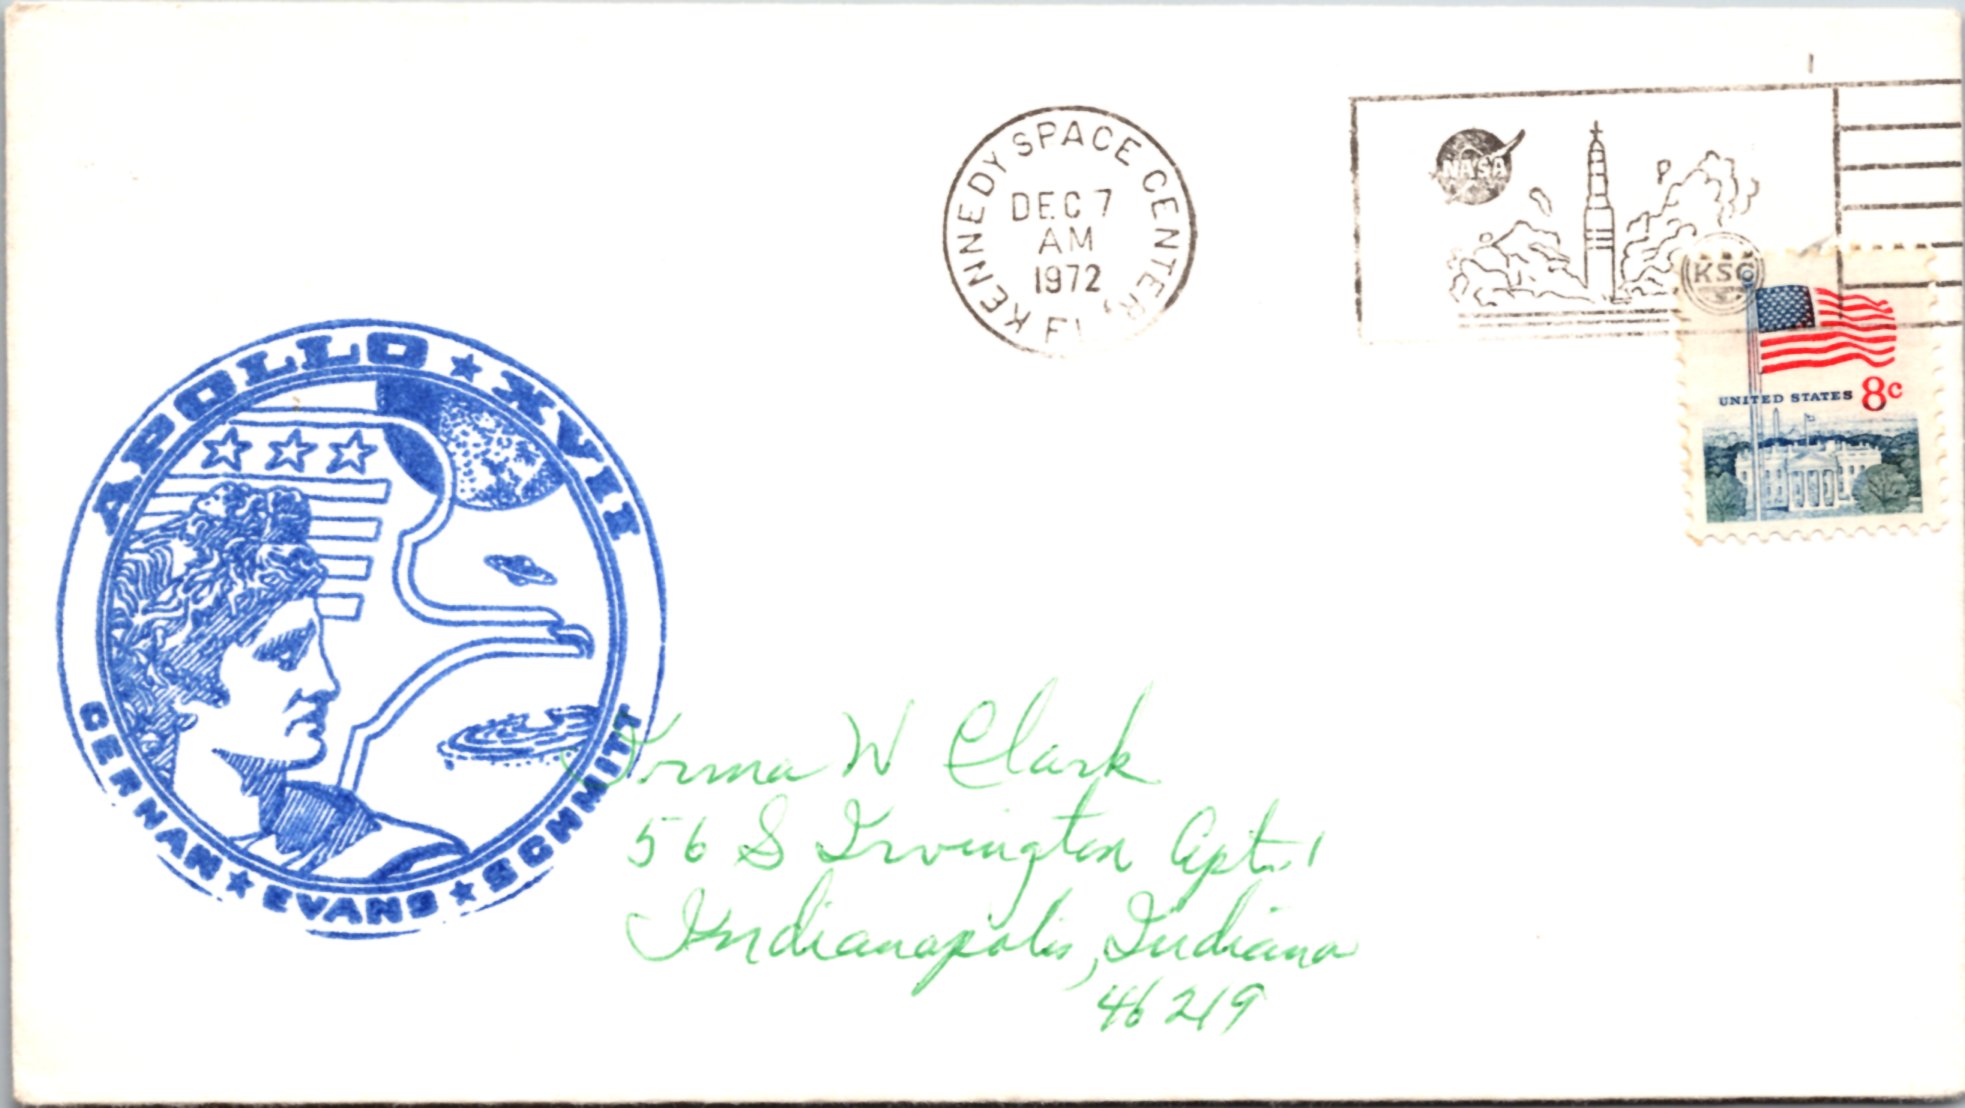 KENNEDY SPACE CENTER, FL
DEC 7
AM
1972
NASA
KSC
UNITED STATES 8c
APOLLO ★ XVII
CERNAN ★ EVANS ★ SCHMITT
Norma W Clark
56 S Irvington Apt. 1
Indianapolis, Indiana
46219